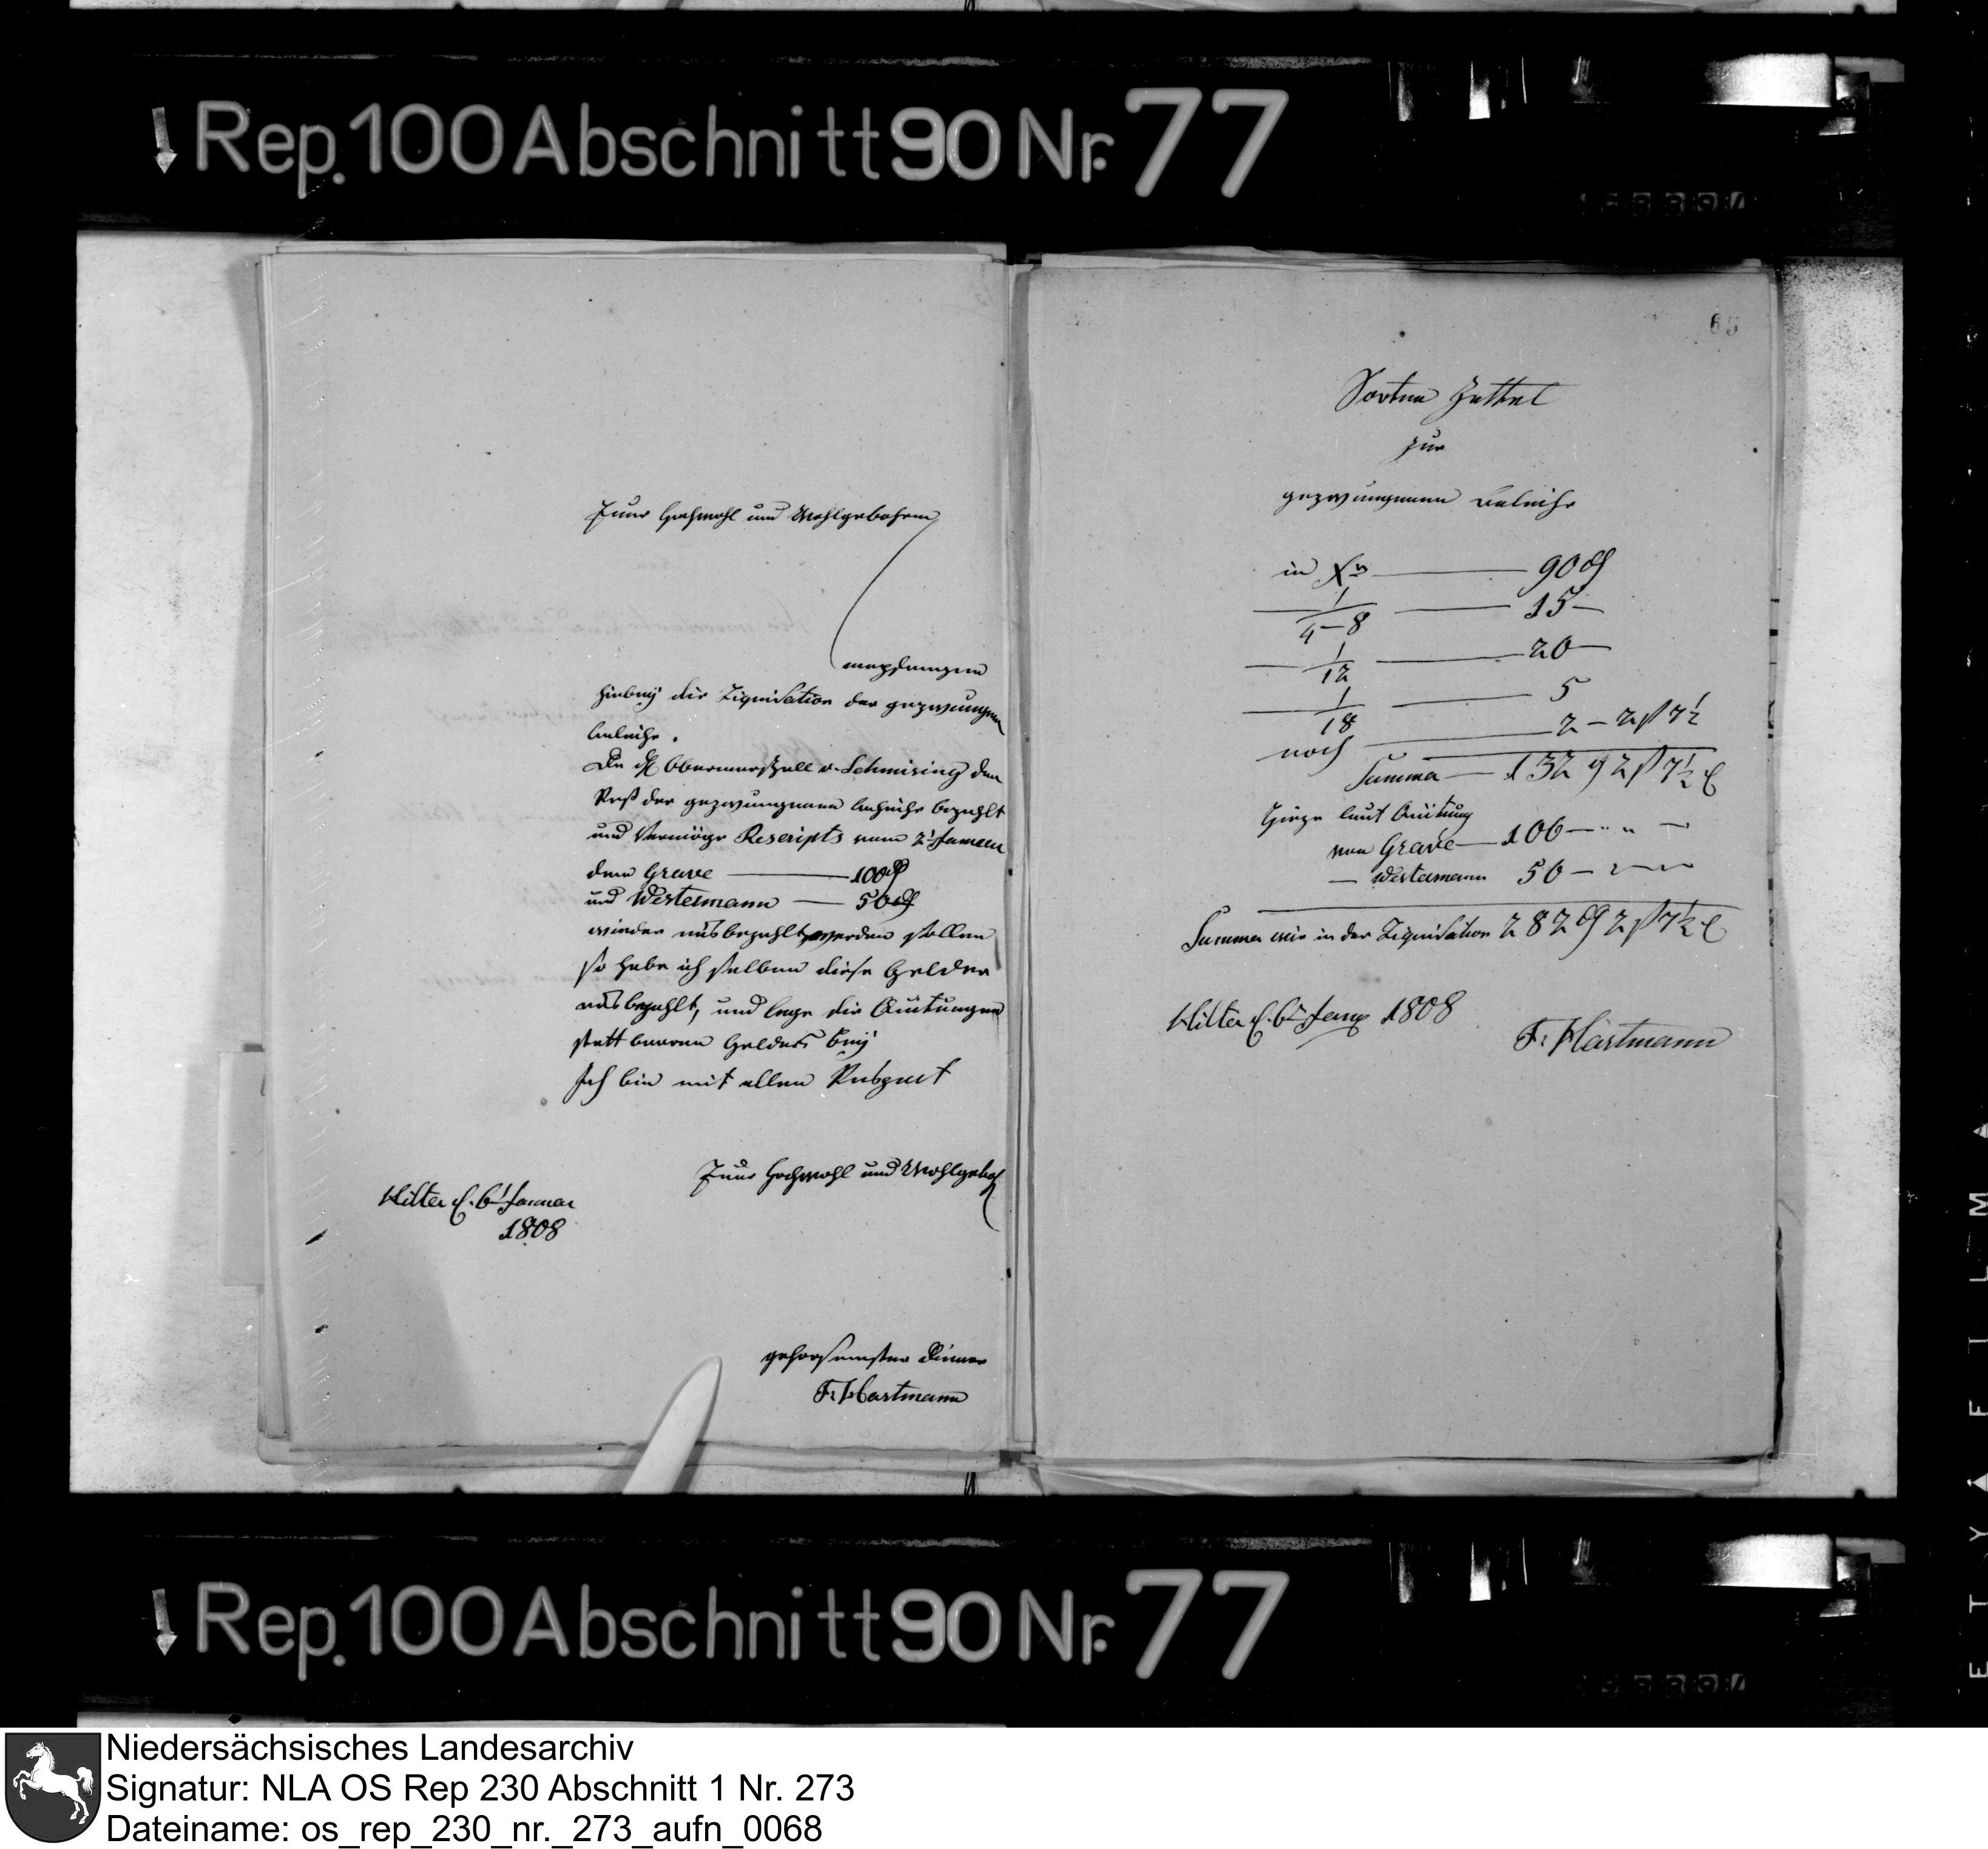 Rep. 100 Abschnitt 90 Nr. 77
Euer Hochwohl und Wohlgebohren
empfangen
hiebey die Liquidation der gezwungen
Anleihe.
Da H Obermarschall v. Schmising den
Rest der gezwungenen Anleihe bezahlt
und Vermöge Rescripts vom 2t Januar
dem Grave — 100
und Westermann — 50
wieder ausbezahlt werden sollen
so habe ich selben diese Gelder
ausbezahlt, und lege die Quitungen
statt baaren Geldes bey
Ich bin mit allen Respect
Euer Hochwohl und Wohlgeb
Hilter d. 6t Januar
1808
gehorsamster Diener
F. Hartmann
65
Sorten Zettel
zur
gezwungenen Anleihe
in — 90
1/4-8 — 15 —
1/12 — 20 —
1/18 — 5
noch — 2 — 2 ß 7½
Summa — 132 2 ß 7½ d
Hiezu laut Quitung
von Grave — 100 — " " —
— Westermann 50 — — —
Summa wie in der Liquidation 282 2 ß 7½ d
Hilter d. 6t Jany 1808
F. Hartmann
Rep. 100 Abschnitt 90 Nr. 77
Niedersächsisches Landesarchiv
Signatur: NLA OS Rep 230 Abschnitt 1 Nr. 273
Dateiname: os_rep_230_nr._273_aufn_0068